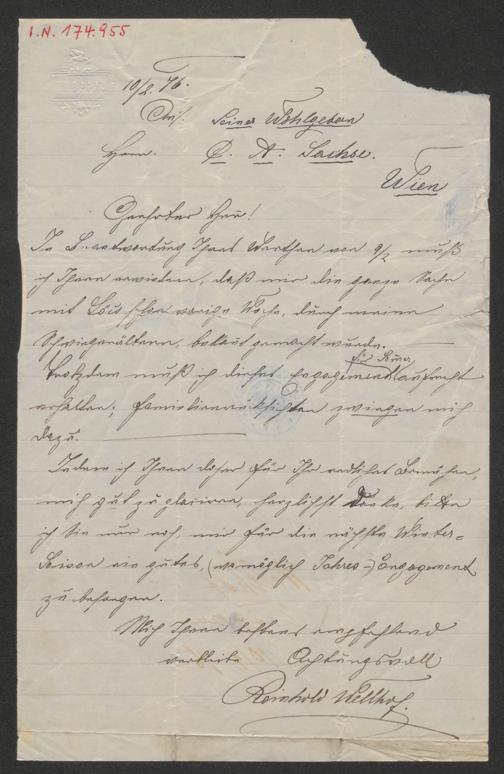 I.N. 174.955
10/2. 76.
An Seiner Wohlgeboren
Herrn. A. Sachse.
Wien
Geehrter Herr!
In Beantwortung Ihres Werthen von 9/2 muß
ich Ihnen erwidern, daß mir die ganze Sache
mit vorige Woche, durch meine
Schwiegerältern, bekannt gemacht wurde.
Trotzdem muß ich dieses Engagement für aufrecht
erhalten; Familienrücksichten zwingen mich
dazu.
Indem ich Ihnen daher für Ihr redliches Bemühen,
mich gut zu placieren, herzlichst danke, bitte
ich Sie nur noch, mir für die nächste Winter-
Saison ein gutes, (womöglich Jahres-) Engagement
zu besorgen.
Mich Ihnen bestens empfehlend
verbleibe Achtungsvoll
Reinhold Wellhof.